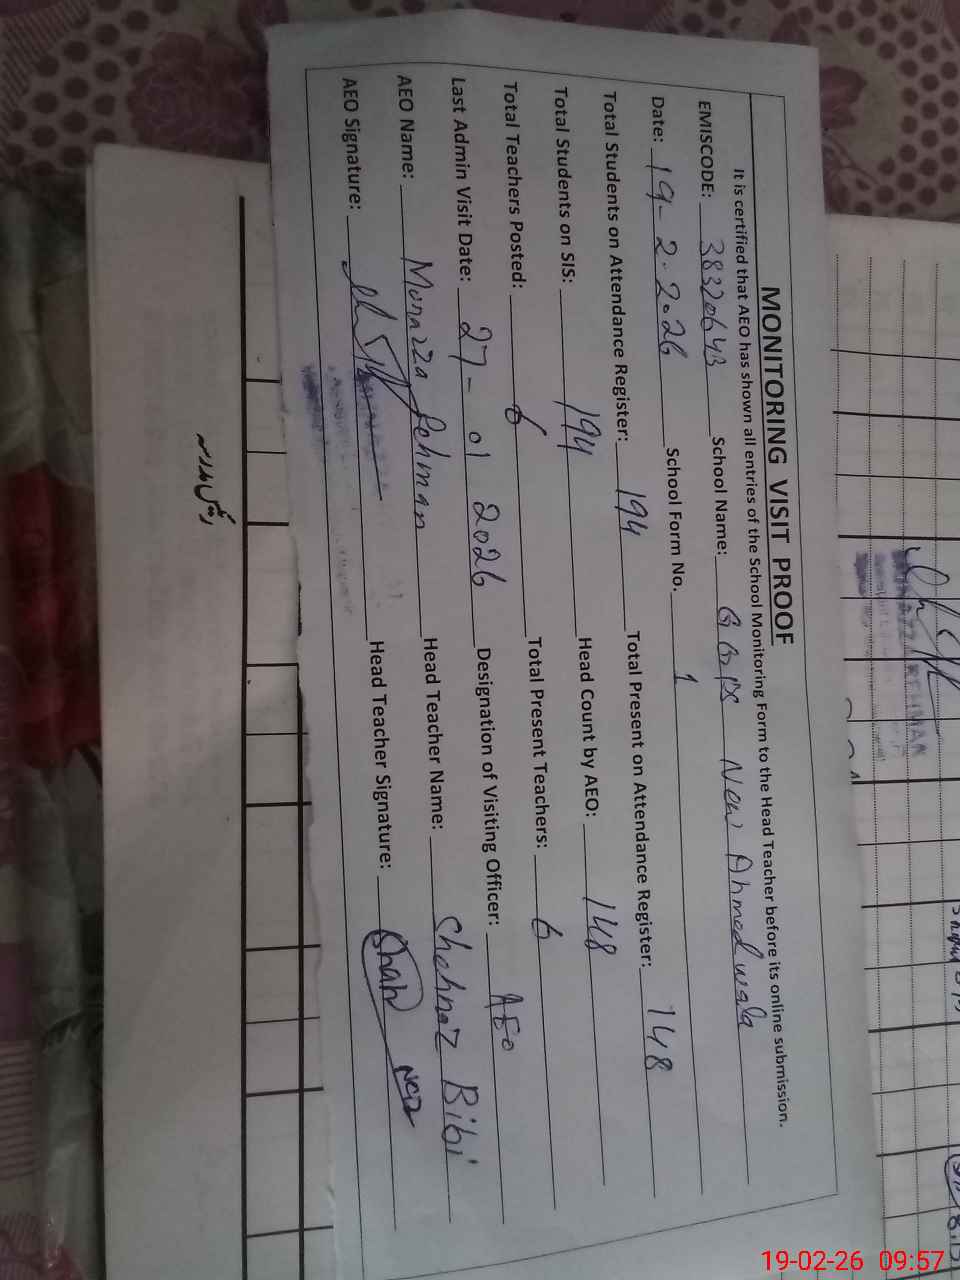 MONITORING VISIT PROOF
It is certified that AEO has shown all entries of the School Monitoring Form to the Head Teacher before its online submission.
EMISCODE: 38320643 School Name: GGPS New Ahmed wala
Date: 19-2-2026 School Form No. 1
Total Students on Attendance Register: 194 Total Present on Attendance Register: 148
Total Students on SIS: 194 Head Count by AEO: 148
Total Teachers Posted: 6 Total Present Teachers: 6
Last Admin Visit Date: 27-01 2026 Designation of Visiting Officer: AEO
AEO Name: Murazza Rehman Head Teacher Name: Shehnaz Bibi
AEO Signature: Head Teacher Signature:
REHMAN
19-02-26 09:57